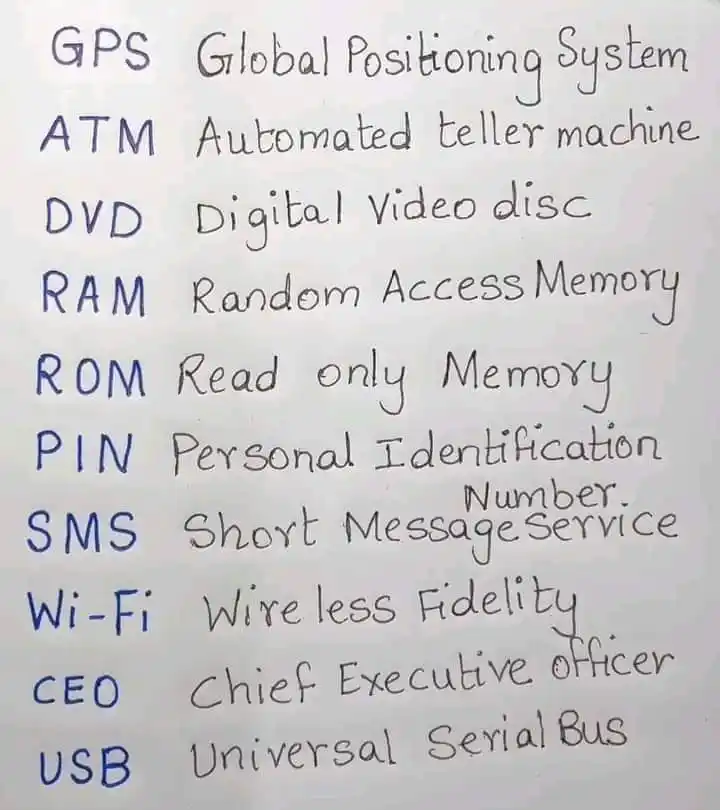 GPS Global Positioning System
ATM Automated teller machine
DVD Digital Video disc
RAM Random Access Memory
ROM Read only Memory
PIN Personal Identification
Number.
SMS Short Message Service
Wi-Fi Wireless Fidelity
CEO Chief Executive officer
USB Universal Serial Bus